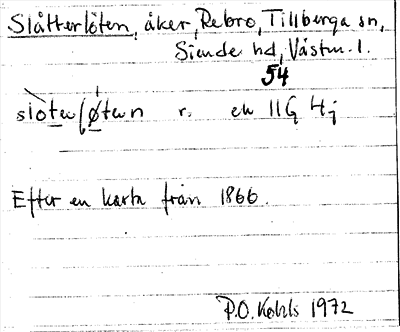 Slåtterlöten, åker, Rebro, Tillberga sn,
Siende hd, Västm. l.
54
sloter/øtern r. ek 11G 4j
Efter en karta från 1866.
P.O. Kohls 1972